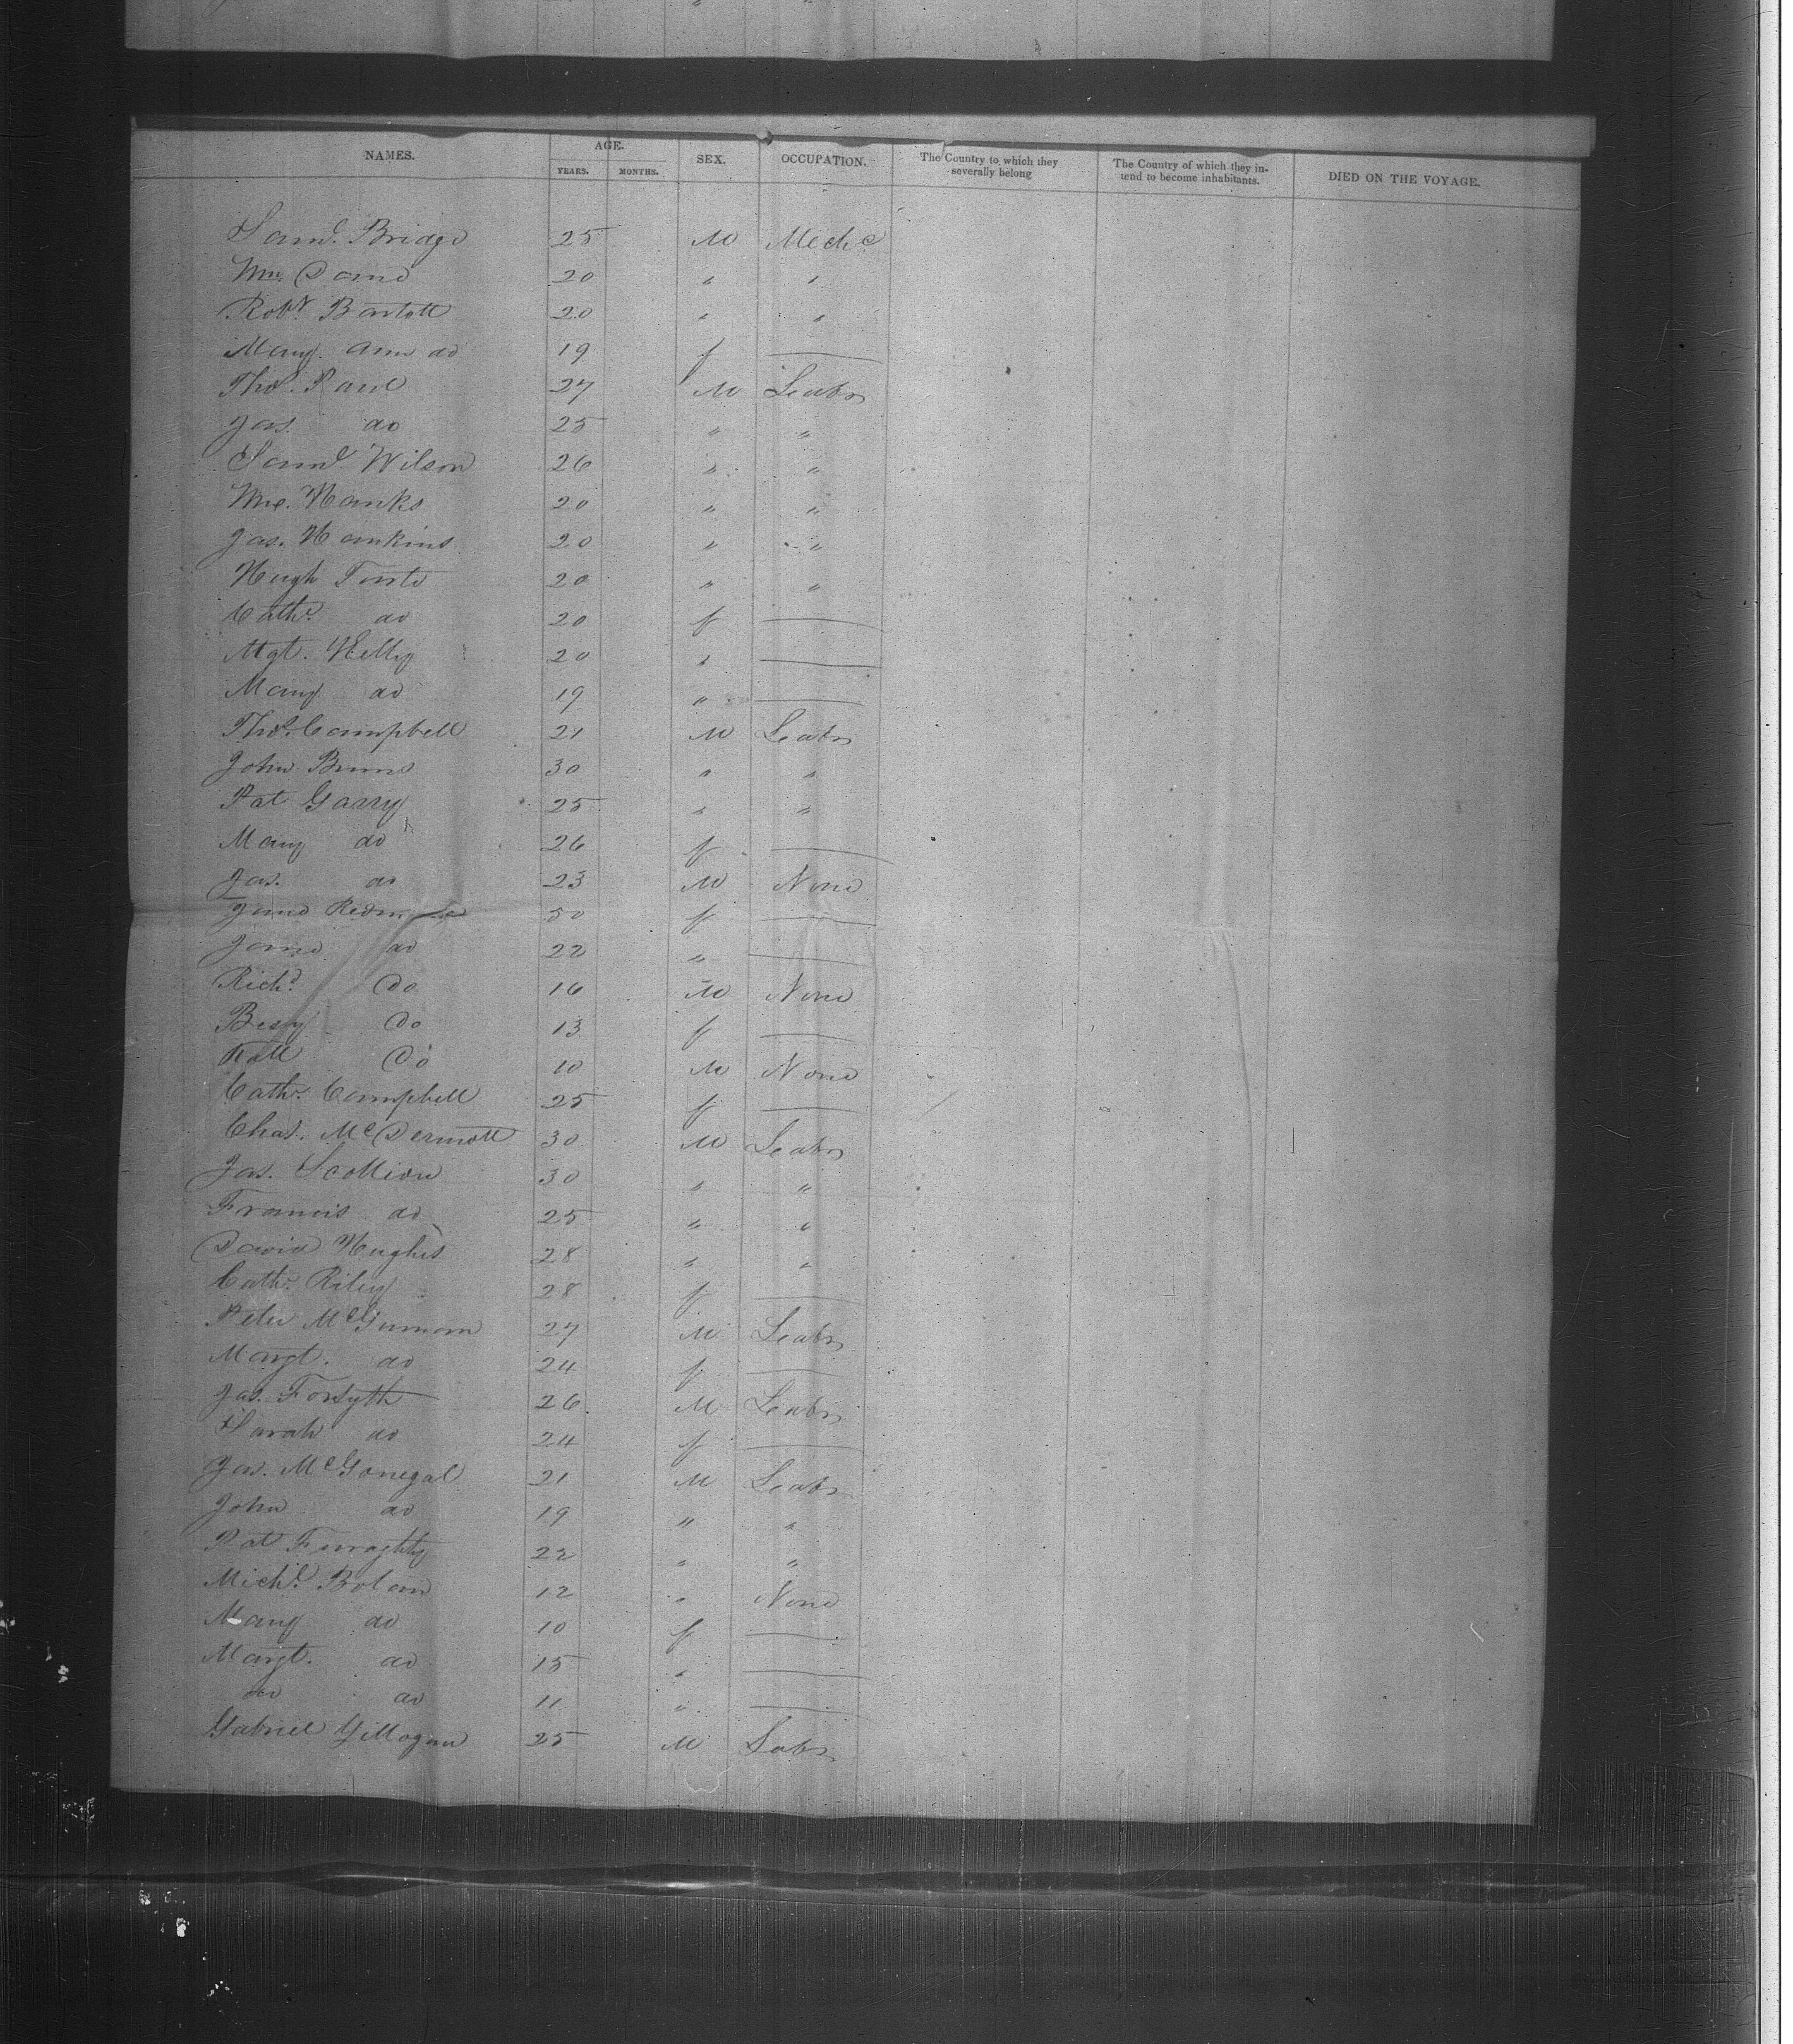 NAMES. AGE. YEARS. MONTHS. SEX. OCCUPATION. The Country to which they severally belong The Country of which they intend to become inhabitants. DIED ON THE VOYAGE.
Saml. Bridge 25 M Mechc
Wm. 20 " "
Robt. Bartlett 20 " "
Mary Ann do 19 f —
Thos. Paul 27 M Labr
Jas. do 25 " "
Saml Wilson 26 " "
Wm. Hanks 20 " "
Jas. Hankins 20 " "
Hugh 20 " "
Cathe. do 20 f —
Mgt. Kelly 20 " —
Mary do 19 " —
Thos. Campbell 21 M Labr
John Burns 30 " "
Pat Garry 25 " "
Mary do 26 f —
Jas. do 23 M None
Jane 50 f —
Jane do 22 " —
Richd. Do 16 M None
Bessy Do 13 f —
Do 10 M None
Cathe. Campbell 25 f —
Chas. McDermott 30 M Labr
Jas. Scollion 30 " "
Francis do 25 " "
David Hughes 28 " "
Cathe. Riley 28 f —
Peter 27 M Labr
Margt. do 24 f —
Jas. Forsyth 26 M Labr
Sarah do 24 f —
Jas. McGonegal 21 M Labr
John do 19 " "
Pat 22 " "
Michl. Bolan 12 " None
Mary do 10 f —
Margt. do 15 " —
do do 11 " —
Gabriel Gillogan 25 M Labr